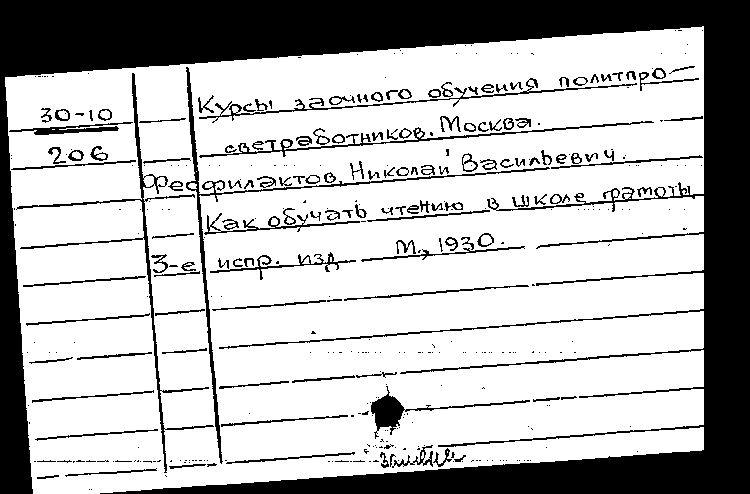 30-10
206
Курсы заочного обучения политпро-
светработников. Москва.
Феофилактов, Николай Васильевич.
Как обучать чтению в школе грамоты.
3-е испр. изд М., 1930.